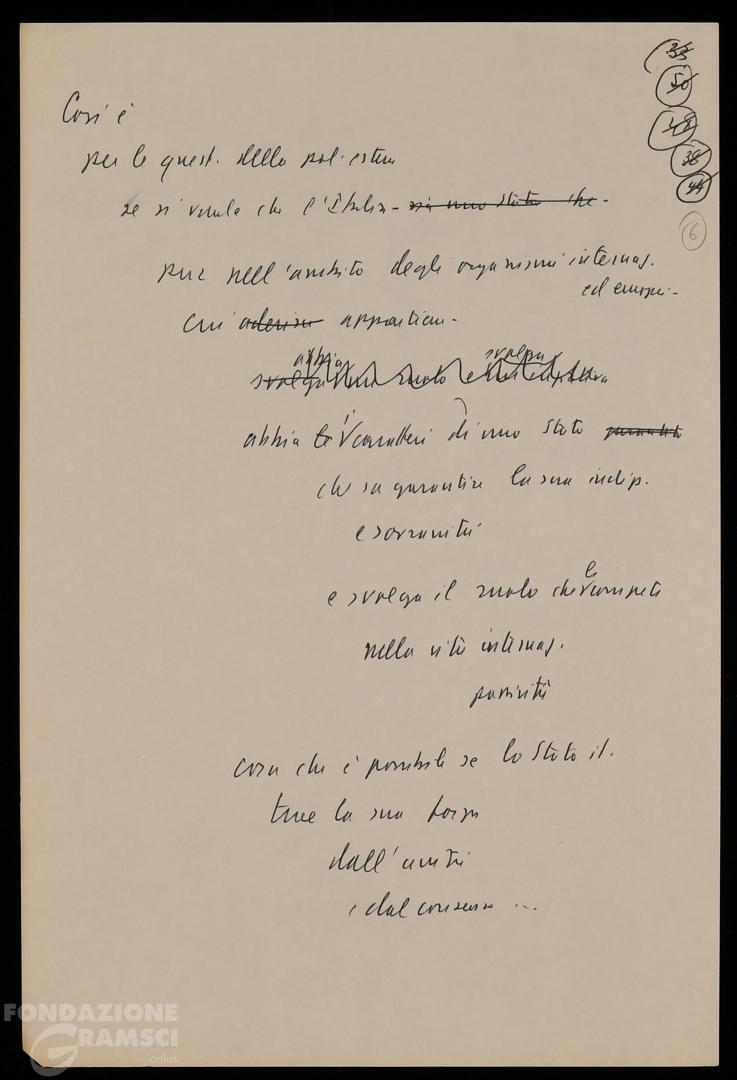 33
50
42
38
44
6
Così è
per le quest. della pol. estera
se si vuole che l'Italia - sia uno Stato che -
pur nell'ambito degli organismi internaz.
ed europei -
cui aderisce appartiene -
abbia svolga
svolga un ruolo e
abbia le i caratteri di uno Stato
che sa garantire la sua indip.
e sovranità
e svolga il ruolo che le compete
nella vita internaz.
passività
cosa che è possibile se lo Stato it.
trae la sua forza
dall'unità
e dal consenso ...
FONDAZIONE
GRAMSCI
onlus